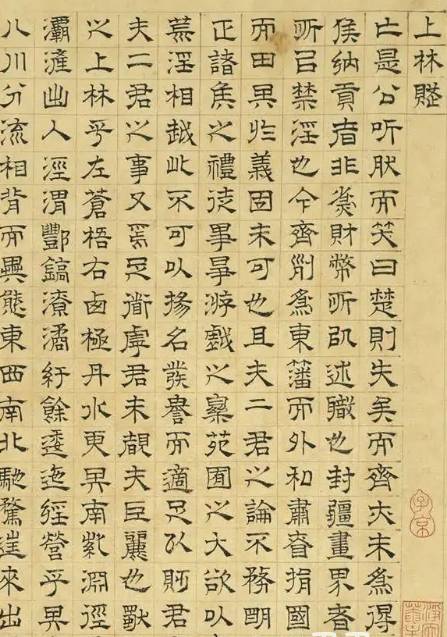 上林賦
亡是公听肰而笑曰楚則失矣而齊亦未為得
侯納貢者非為財幣所以述職也封疆畫界者
所㠯禁淫也今齊列為東藩而外和肅眘捐國
而田其於義固未可也且夫二君之論不務明
正諸侯之禮徒事爭游戲之樂苑囿之大欲以
荒淫相越此不可以揚名發譽而適足以貶君
夫二君之事又焉足道虖君未覩夫巨麗也獨
之上林乎左蒼梧右西極丹水更其南紫淵徑
灞滻出入涇渭酆鎬潦潏紆餘逶迤經營乎其
八川分流相背而異態東西南北馳騖往來出
子京